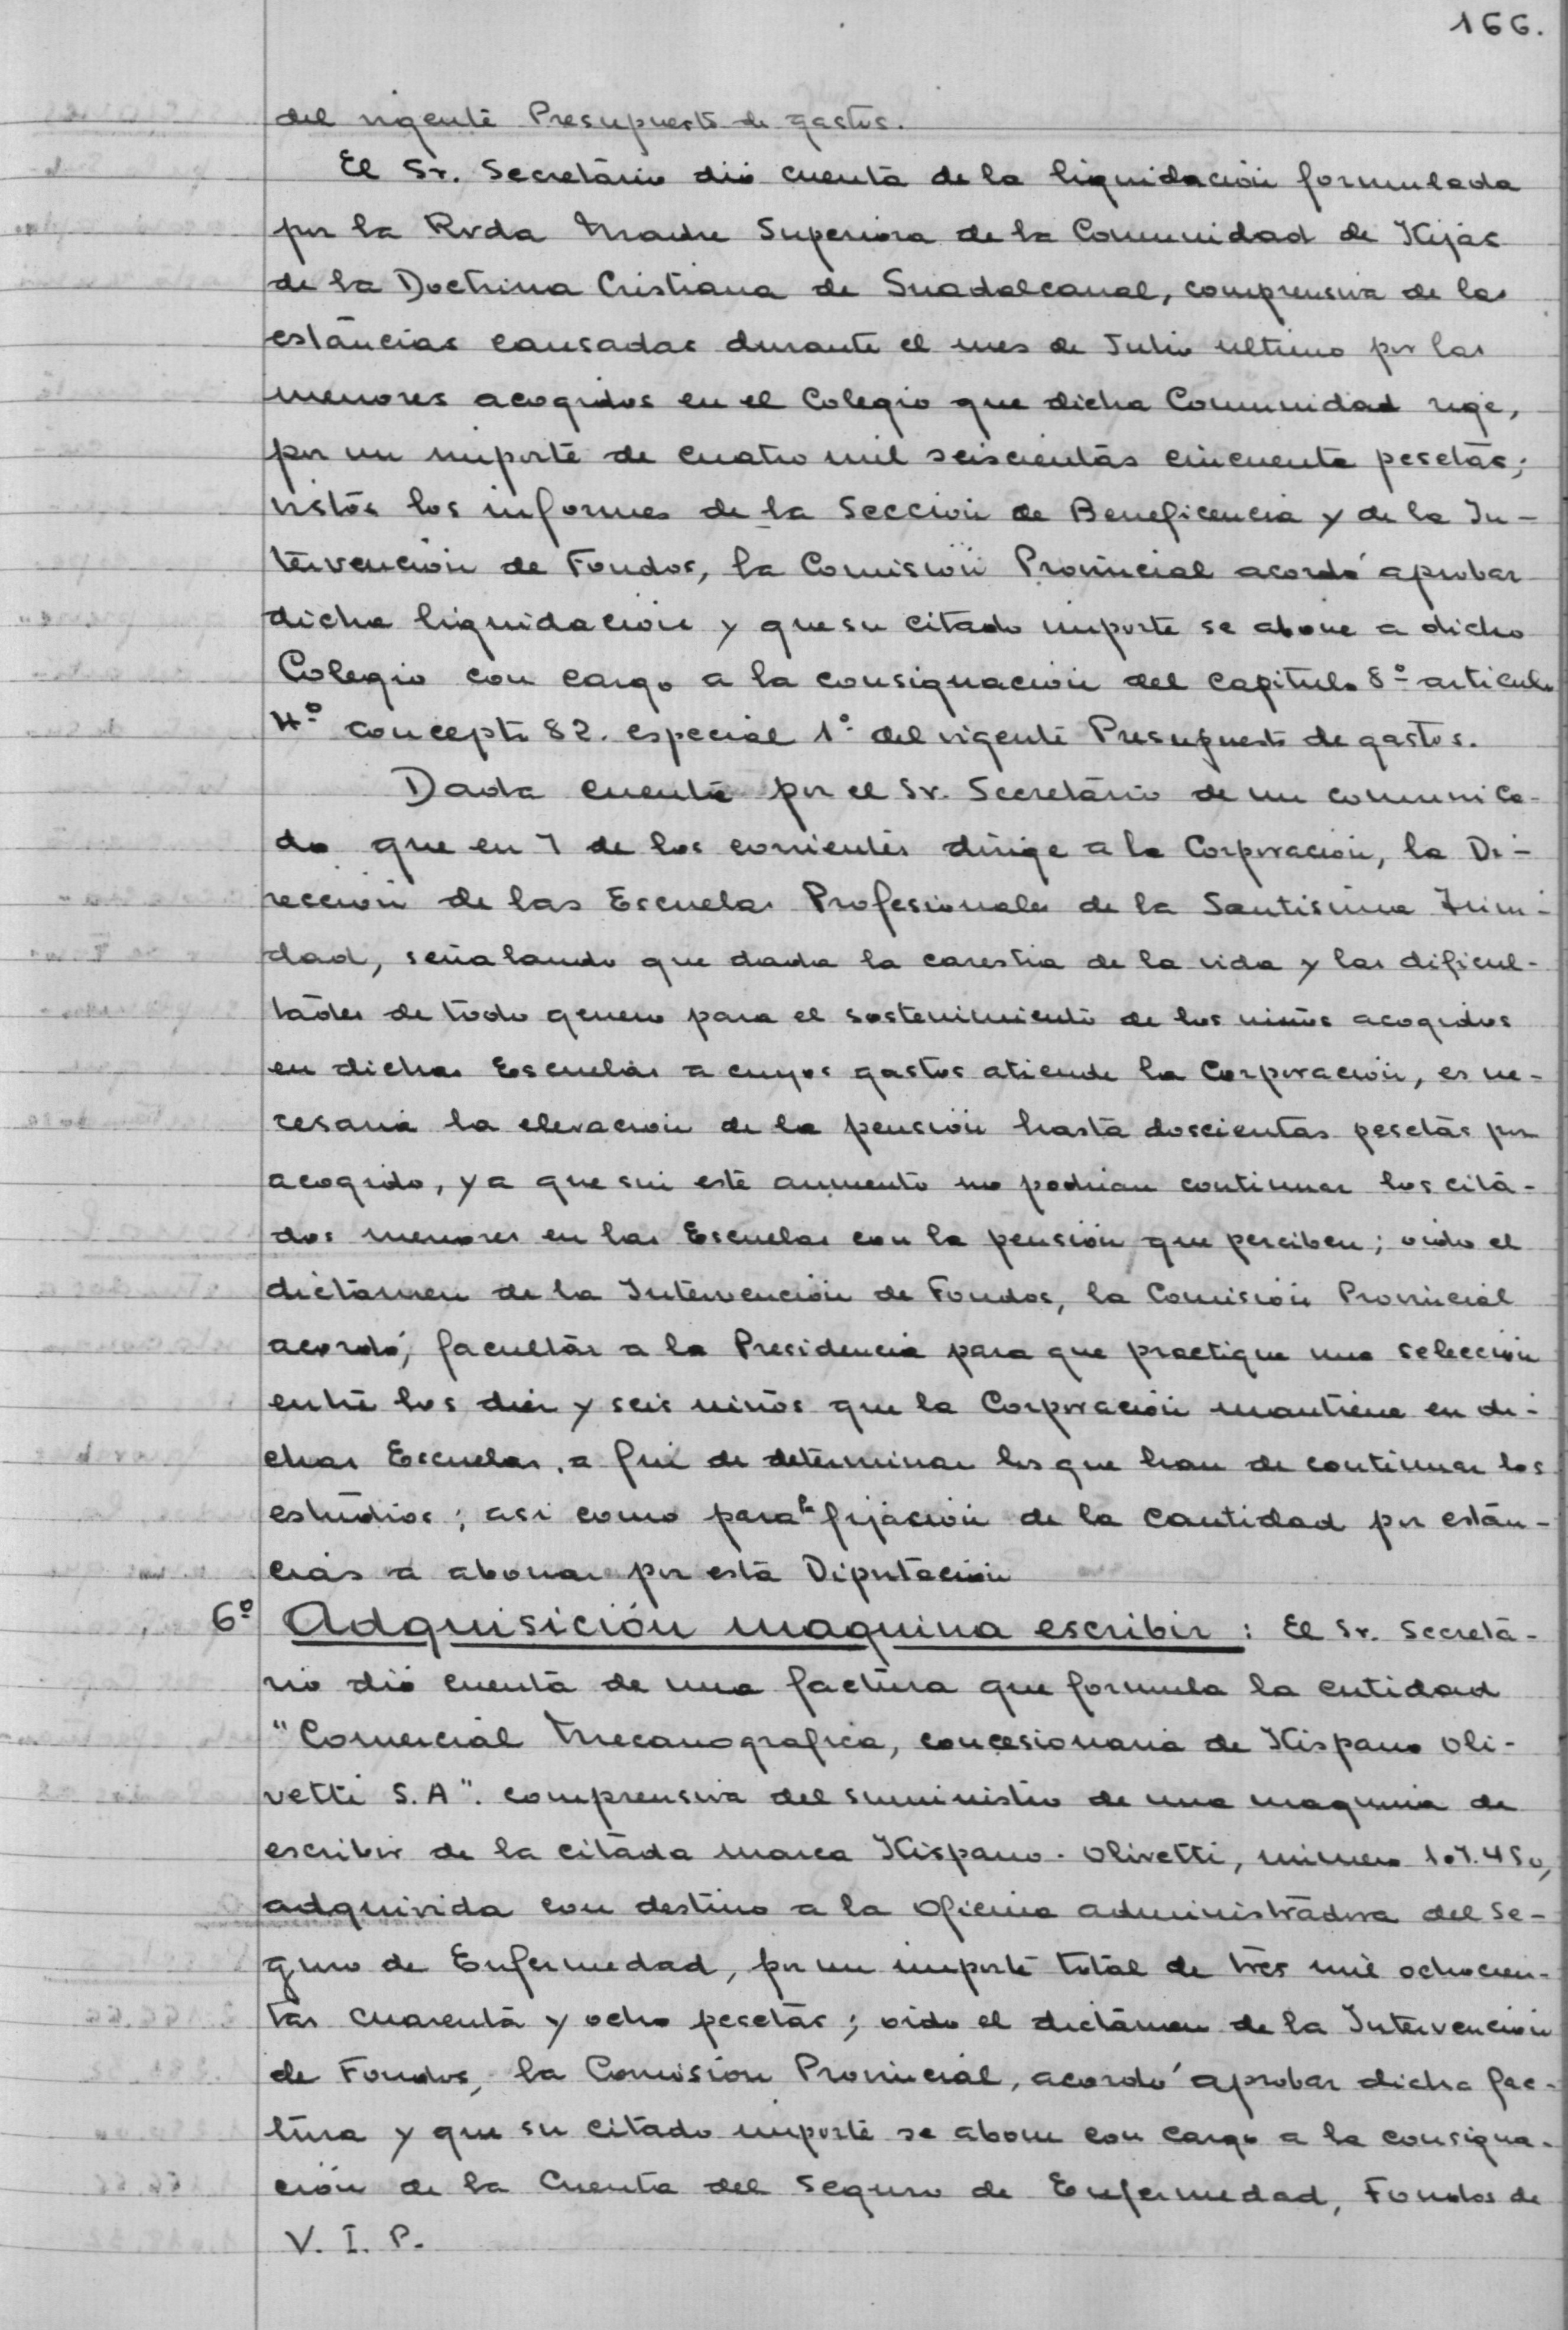 166.
del vigente Presupuesto de gastos.
El Sr. Secretario dió cuenta de la liquidación formulada
por la Rvda Madre Superiora de la Comunidad de Hijas
de la Doctrina Cristiana de Guadalcanal, comprensiva de las
estancias causadas durante el mes de Julio ultimo por las
menores acogidos en el Colegio que dicha Comunidad rige,
por un importe de cuatro mil seiscientas cincuenta pesetas;
vistos los informes de la Sección de Beneficencia y de la In-
tervención de Fondos, la Comisión Provincial acordó aprobar
dicha liquidación y que su citado importe se abone a dicho
Colegio con cargo a la consignación del capitulo 8º articulo
4º concepto 82. especial 1º del vigente Presupuesto de gastos.
Dada cuenta por el Sr. Secretario de un comunica-
do que en 7 de los corrientes dirige a la Corporación, la Di-
rección de las Escuelas Profesionales de la Santisima Trini-
dad, señalando que dada la carestia de la vida y las dificul-
tades de todo genero para el sostenimiento de los niños acogidos
en dichas Escuelas a cuyos gastos atiende la Corporación, es ne-
cesaria la elevacion de la pensión hasta doscientas pesetas por
acogido, ya que sin este aumento no podrian continuar los cita-
dos menores en las Escuelas con la pensión que perciben; oido el
dictamen de la Intervención de Fondos, la Comisión Provincial
acordó, facultar a la Presidencia para que practique una selección
entre los diez y seis niños que la Corporación mantiene en di-
chas Escuelas, a fin de determinar los que han de continuar los
estudios; asi como para la fijación de la cantidad por estan-
cias a abonar por esta Diputación
6º Adquisición maquina escribir: El Sr. Secreta-
rio dió cuenta de una factura que formula la entidad
"Comercial Mecanografica, concesionaria de Hispano Oli-
vetti S.A". comprensiva del suministro de una maquina de
escribir de la citada marca Hispano-Olivetti, número 107.450,
adquirida con destino a la Oficina administradora del Se-
guro de Enfermedad, por un importe total de tres mil ochocien-
tas cuarenta y ocho pesetas; oido el dictámen de la Intervención
de Fondos, la Comisión Provincial, acordó aprobar dicha fac-
tura y que su citado importe se abone con cargo a la consigna-
ción de la Cuenta del Seguro de Enfermedad, Fondos de
V. I. P.